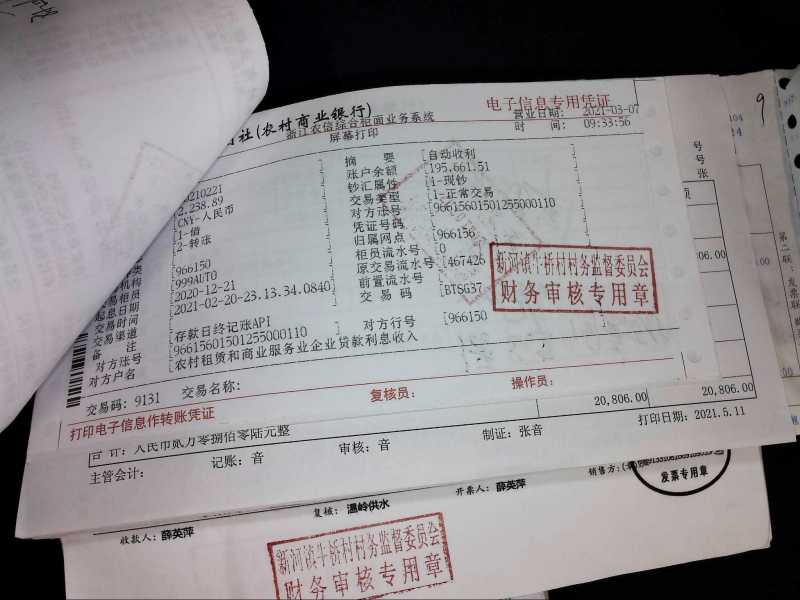 社(农村商业银行)
电子信息专用凭证
浙江农信综合柜面业务系统
营业日期: 2021-03-07
屏幕打印
时 间: 09:33:56
摘 要 [自动收利
20210221
账户余额 [195,661.51
2,238.89
钞汇属性 [4-现钞
CNY-人民币
交易类型 [1-正常交易
1-借
对方账号 [96615601501255000110
2-转账
凭证号码
归属网点 [966156
966150
柜员流水号 [0
999AUTO
原交易流水号 [467426
起息日期 2020-12-21
前置流水号
交易时间 2021-02-20-23.13.34.0840
交 易 码 [BTSG37
交易渠道
备 注 [存款日终记账API
对方账号 [96615601501255000110
对方行号 [966150
对方户名 [农村租赁和商业服务业企业贷款利息收入
交易码: 9131 交易名称:
复核员: 操作员:
打印电子信息作转账凭证
新河镇牛桥村村务监督委员会
财务审核专用章
20,806.00 20,806.00
合 计: 人民币贰万零捌佰零陆元整
打印日期: 2021.5.11
主管会计: 记账: 音 审核: 音 制证: 张音
收款人: 薛英萍 复核: 温岭供水 开票人: 薛英萍 销售方:
发票专用章
新河镇牛桥村村务监督委员会
财务审核专用章
9
号
号
张
06.00
06.00
第二联:发票联